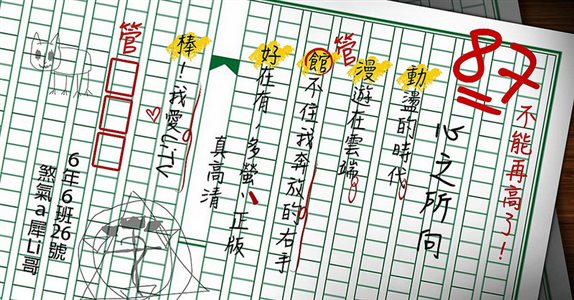 87
不能再高了!
心之所向
動盪的時代
漫遊在雲端
管
館不住我奔放的右手
好在有
多螢、正版
真高清
棒!我愛LiTV
管
6年6班26號
煞氣a犀Li哥